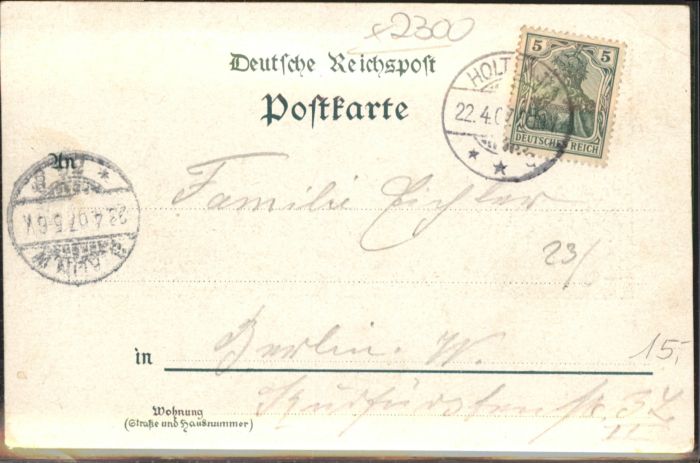 x2300
Deutsche Reichspost
Postkarte
5 5
DEUTSCHES REICH
HOLT
22.4.07
An
Familie Eichler
23.4.07.5-6V.
BERLIN W
23/
in Berlin. W.
15,-
Wohnung
(Straße und Hausnummer)
Kurfürstenstr.
II